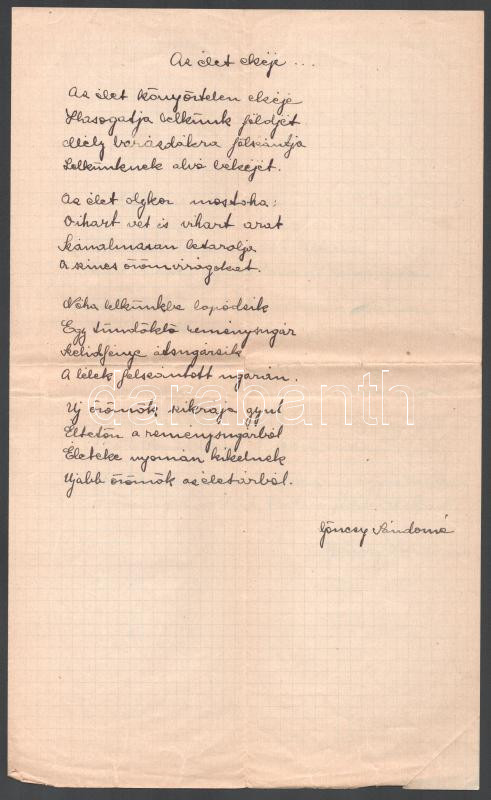 Az élet ekéje ...
Az élet könyörtelen ekéje
Hasogatja lelkünk földjét
Mély barázdákra felszántja
Lelkünknek alvó békéjét.
Az élet olykor mostoha:
Vihart vet és vihart arat
Szánalmasan letarolja
A színes örömvirágokat.
Néha lelkünkbe lopódzik
Egy tündöklő reménysugár
Szelíd fénye átsugárzik
A lélek felszántott ugarán.
Új örömök szikrája gyúl
Éltetőn a reménysugárból
Életeke nyomán kikelnek
Ujabb örömök az életárból.
Gönczy Sándorné
darabanth